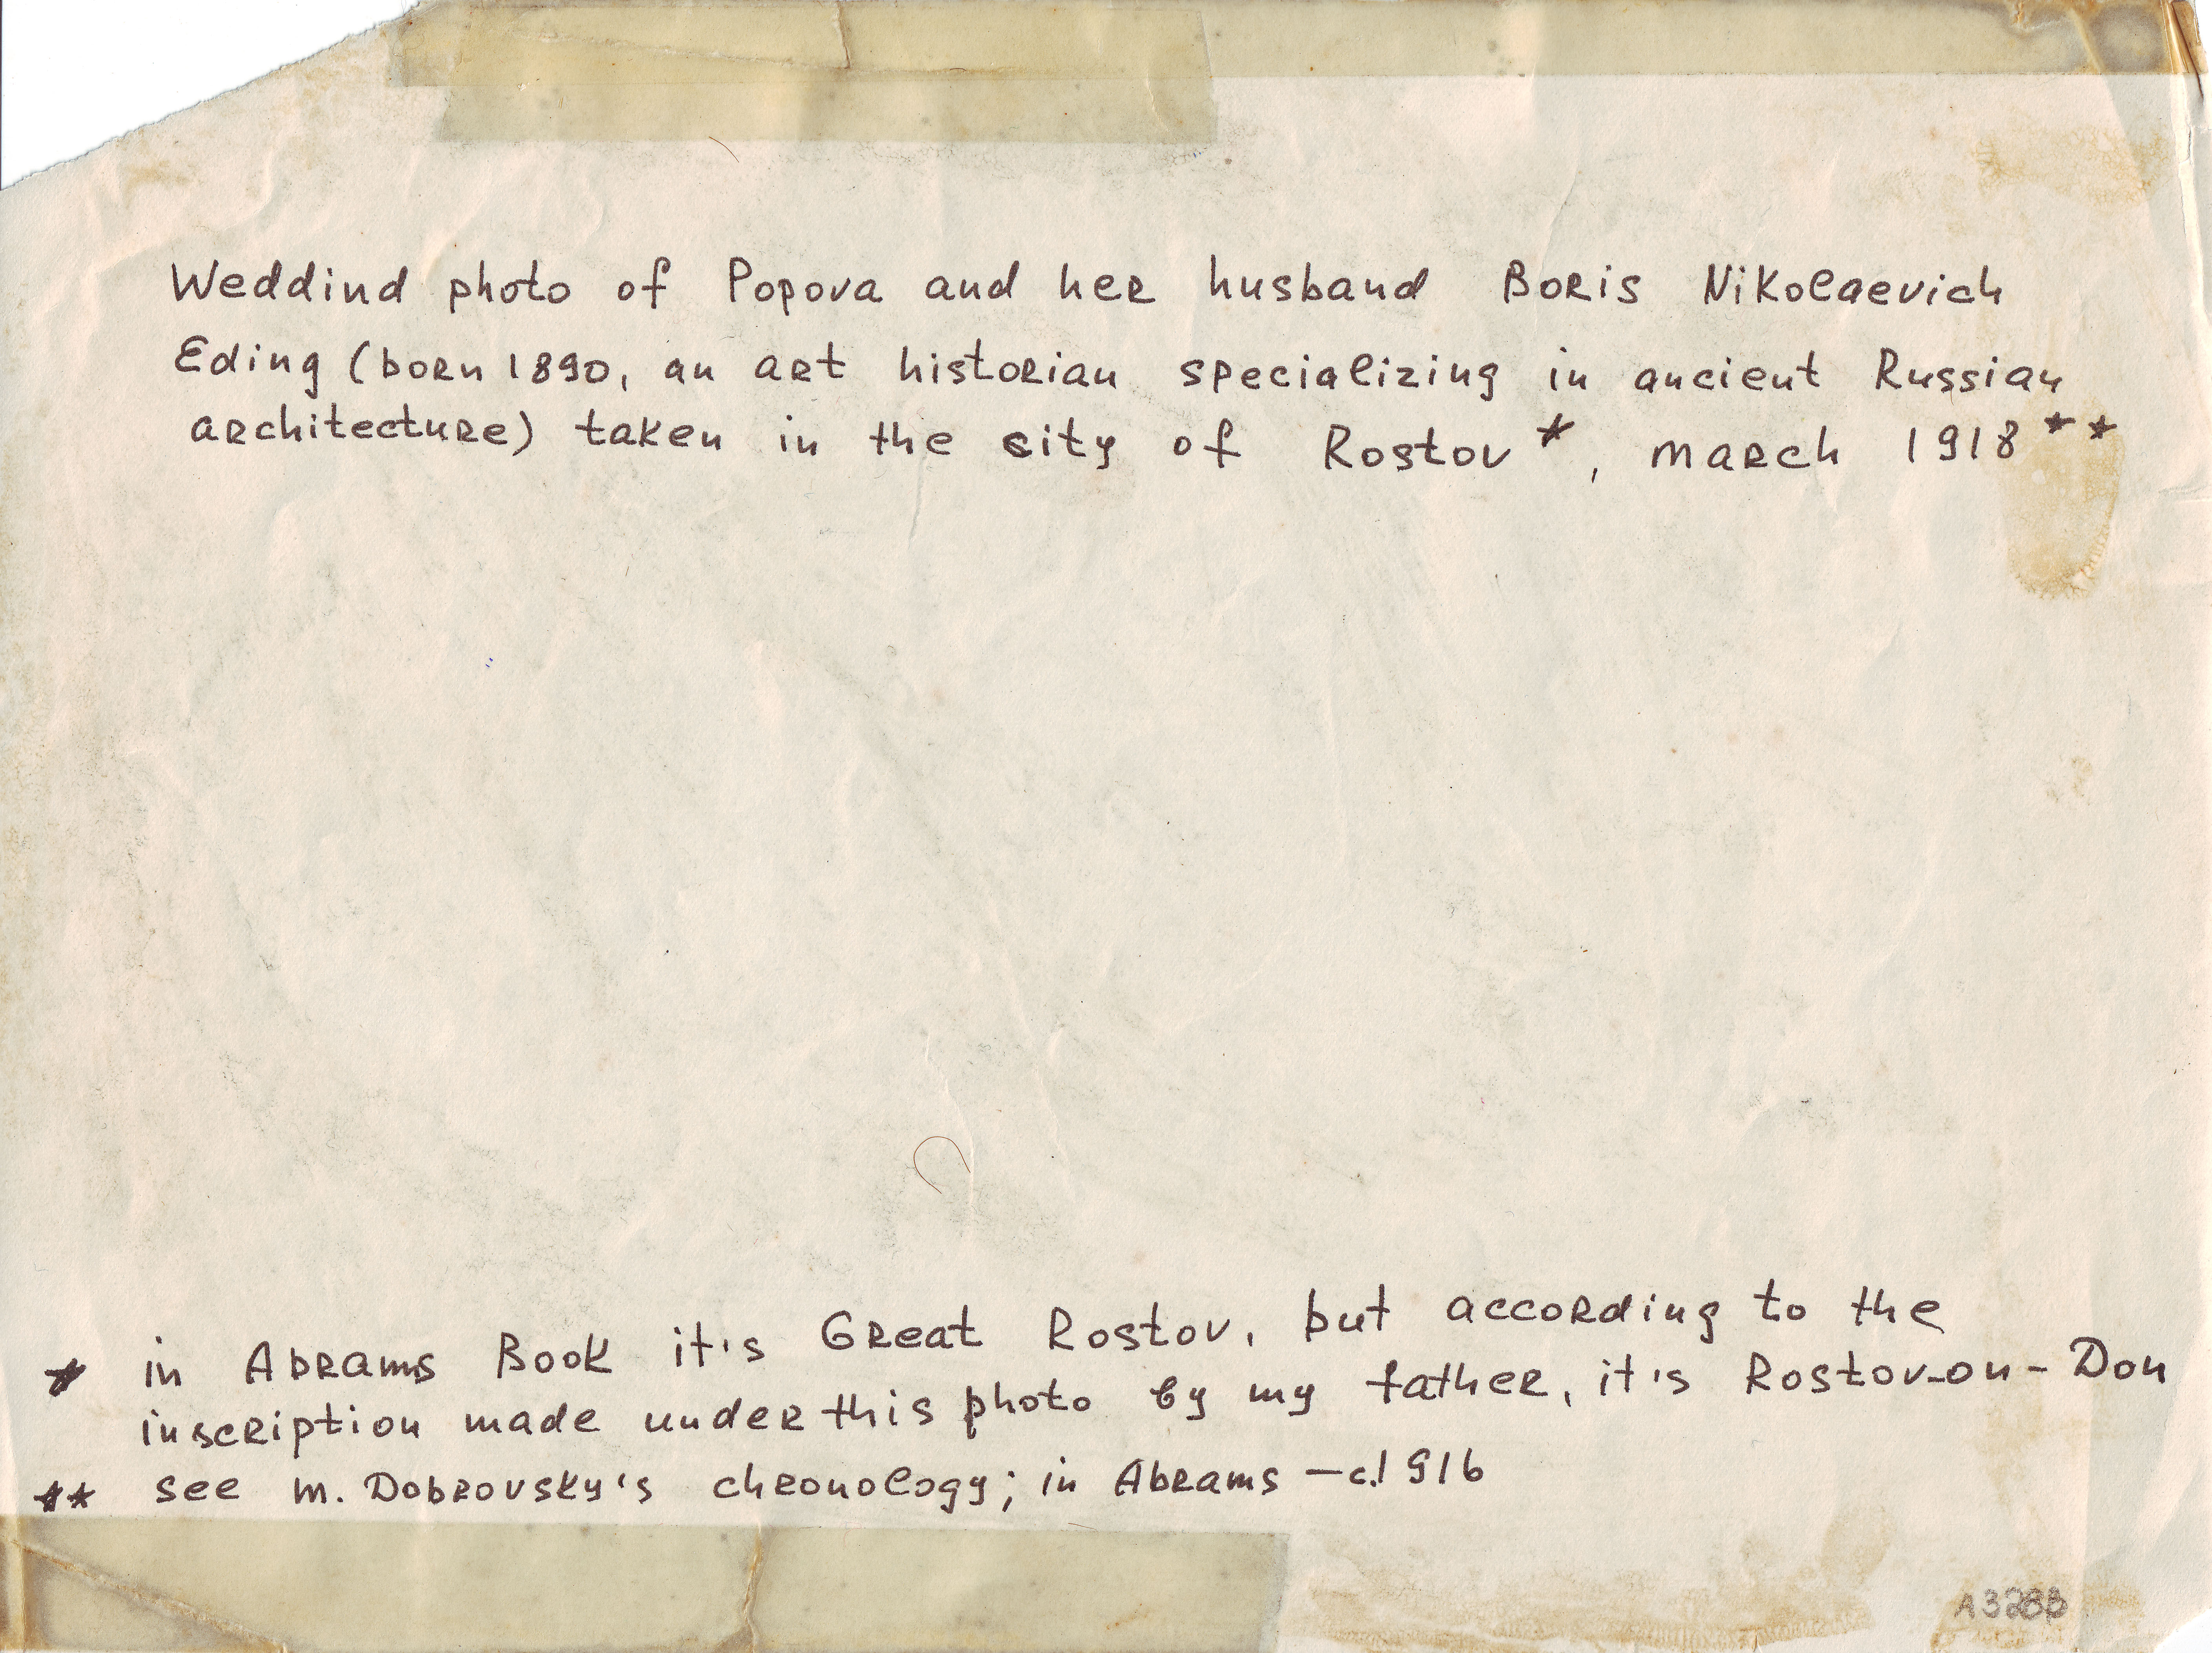 Weddind photo of Popova and her husband Boris Nikolaevich
Eding (born 1890, an art historian specializing in ancient Russian
architecture) taken in the city of Rostov*, march 1918**
* in Abrams Book it's Great Rostov, but according to the
inscription made under this photo by my father, it's Rostov-on-Don
** see M. Dobrovsky's chronology; in Abrams – c.1916